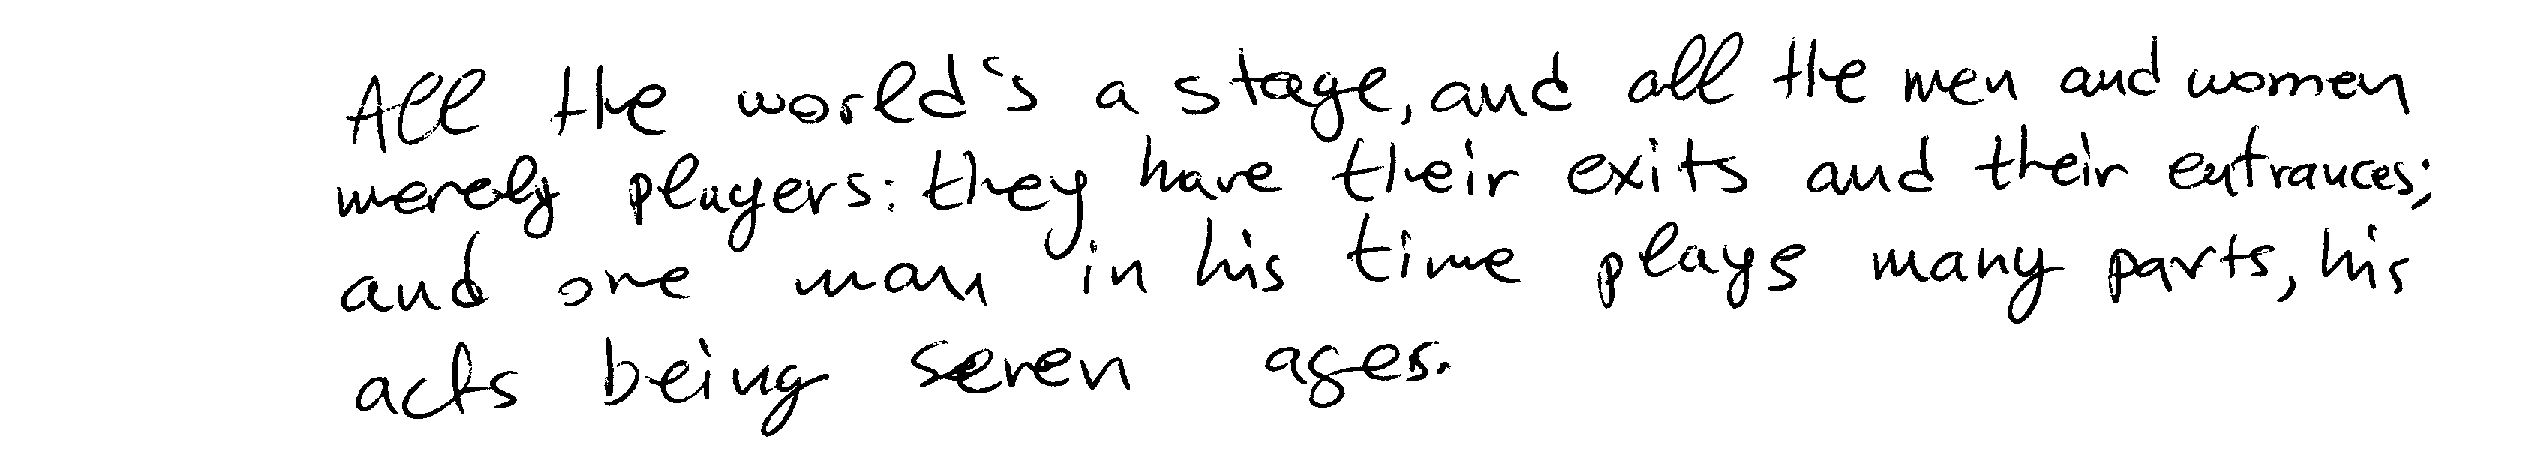 All the world's a stage, and all the men and women
merely players: they have their exits and their entrances;
and one man in his time plays many parts, his
acts being seven ages.